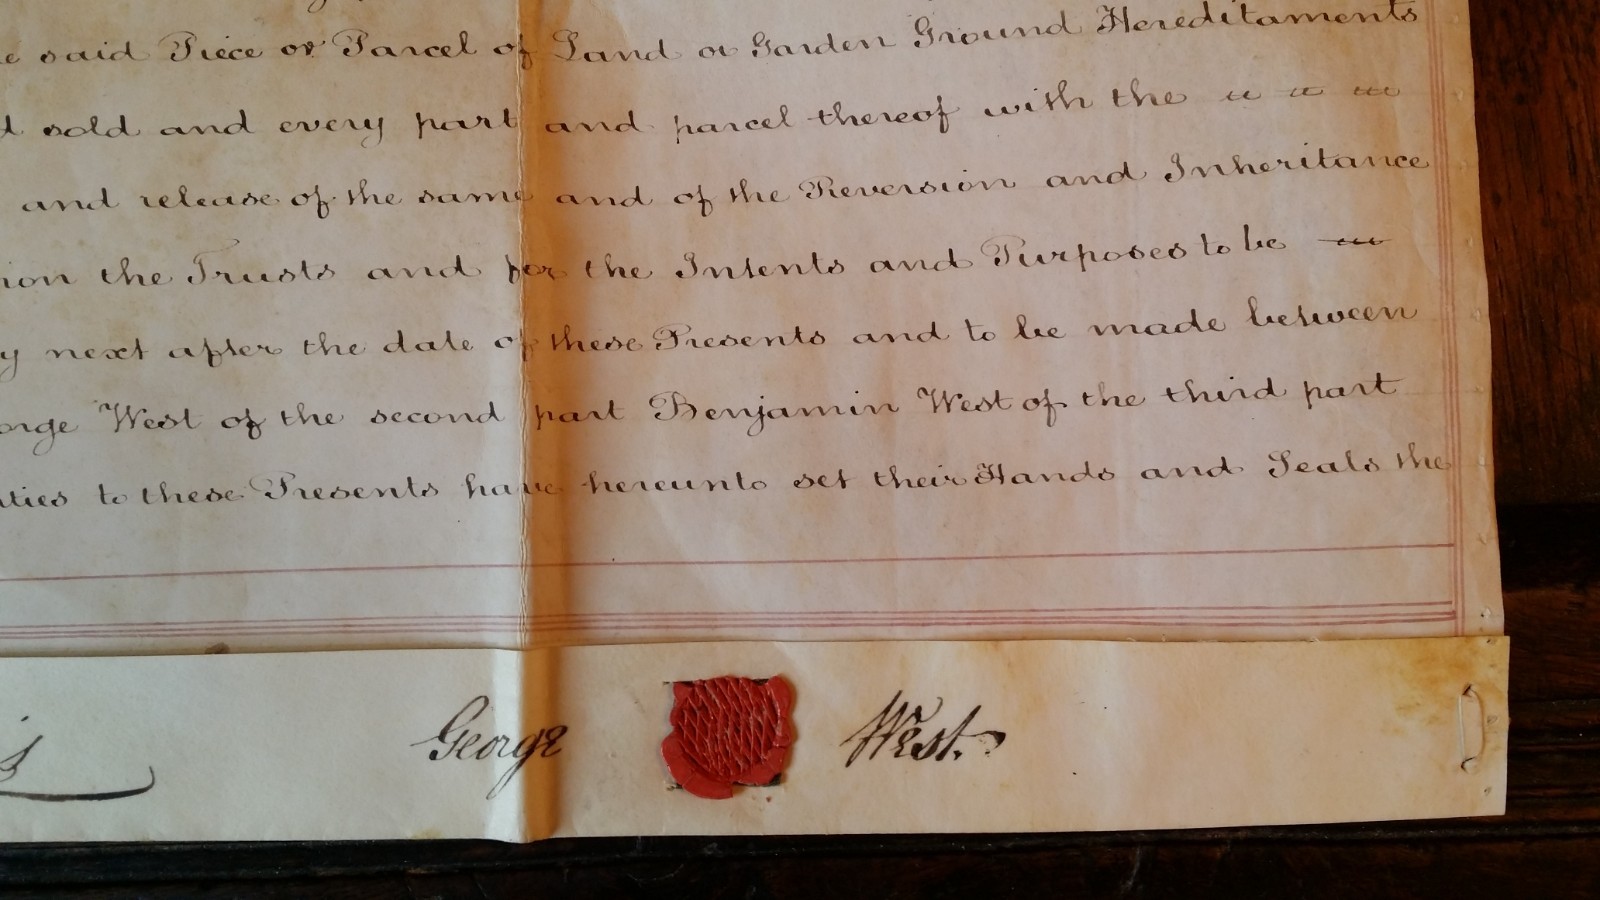 said Piece or Parcel of Land or Garden Ground Hereditaments
sold and every part and parcel thereof with the
and release of the same and of the Reversion and Inheritance
the Trusts and for the Intents and Purposes to be
next after the date of these Presents and to be made between
West of the second part Benjamin West of the third part
to these Presents have hereunto set their Hands and Seals the
George West.